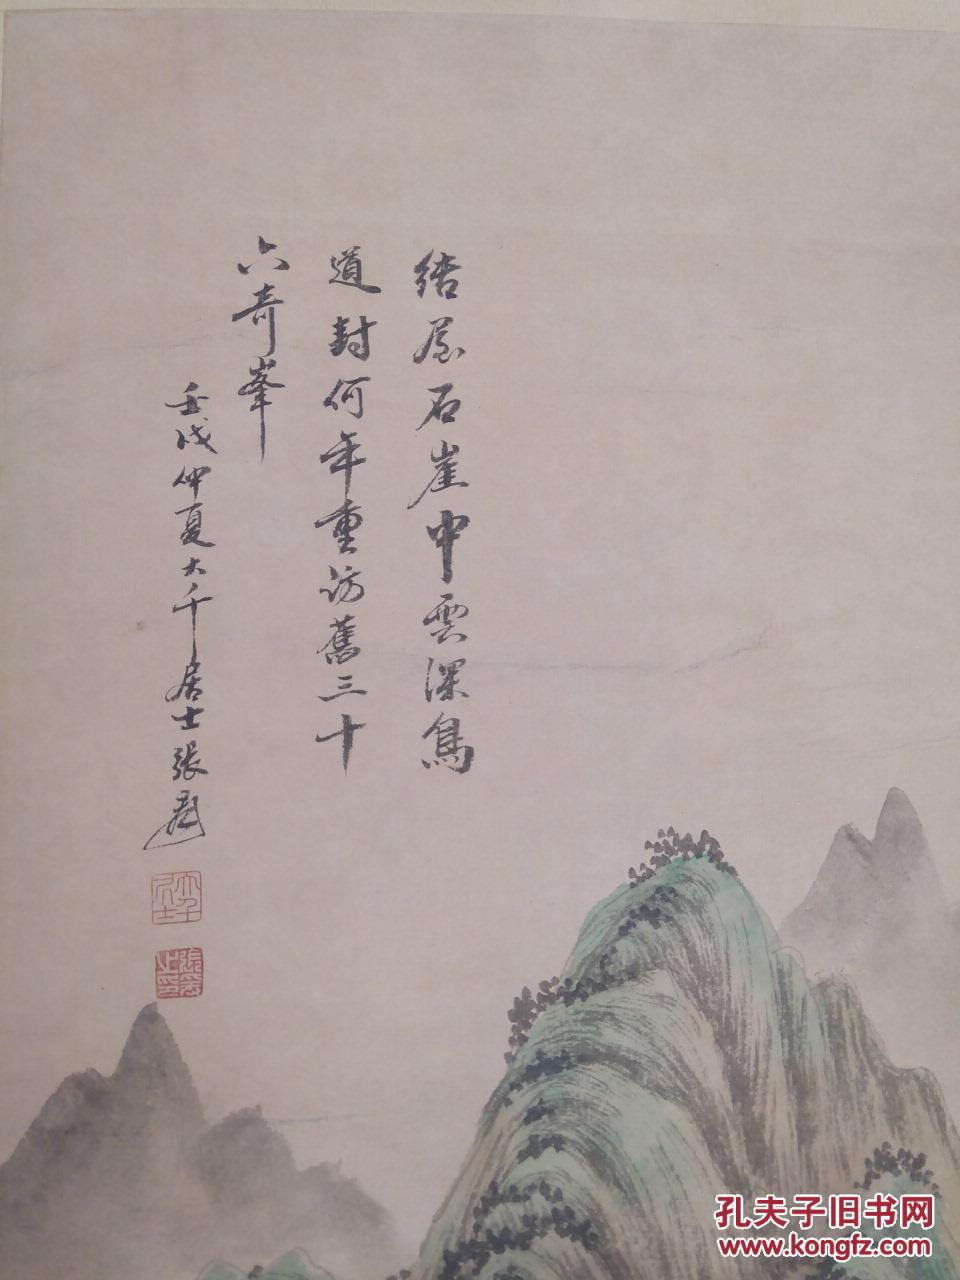 結屋石崖中雲深鳥
道封何年重訪舊三十
六奇峯
壬戌仲夏大千居士張爰
大千居士
張爰之印
孔夫子旧书网
www.kongfz.com